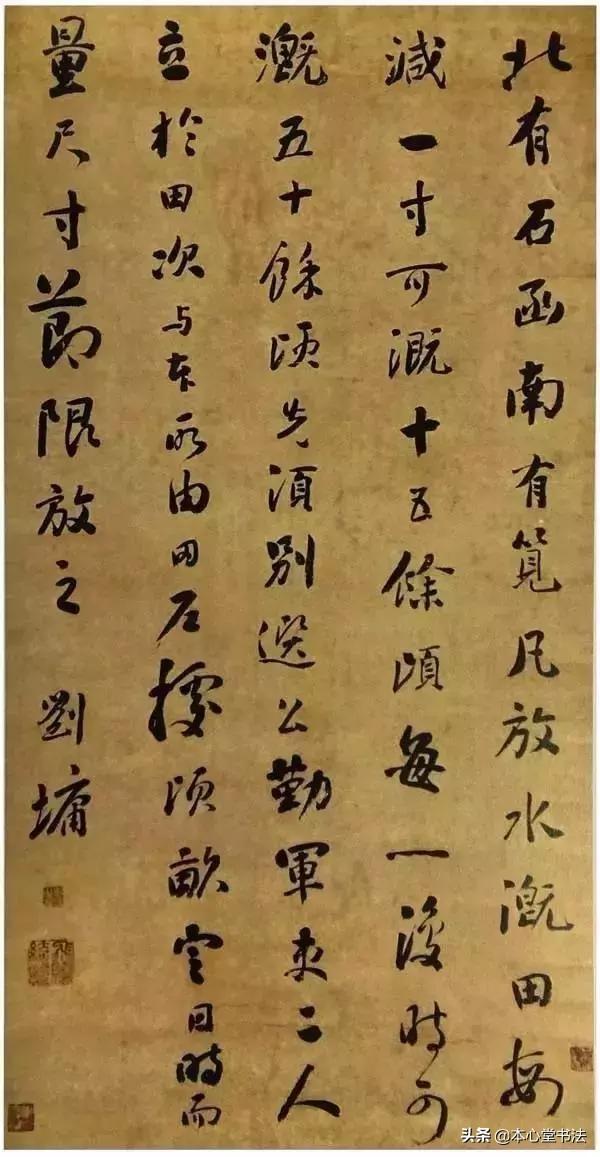 北有石函南有筧凡放水溉田每
減一寸可溉十五餘頃每一復時可
溉五十餘頃先須別選公勤軍吏二人
立於田次与本所由田石據頃畝定日時而
量尺寸節限放之 劉墉
头条 @本心堂书法